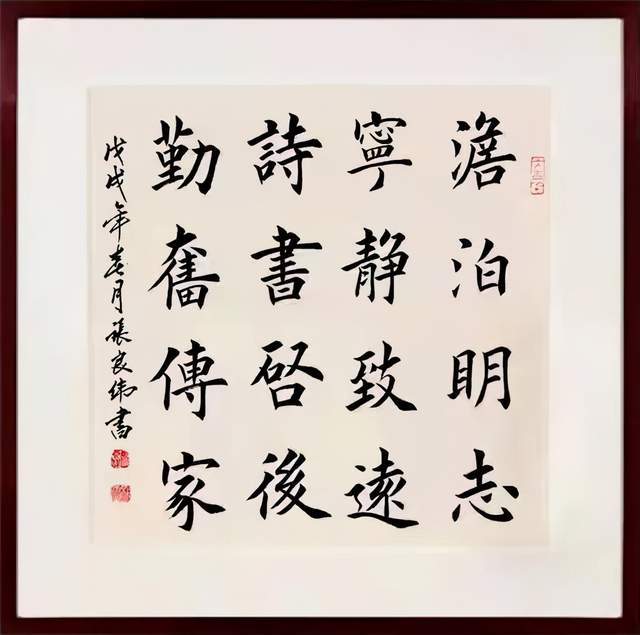 澹泊明志
寧静致遠
詩書啓後
勤奮傳家
戊戌年春月張良偉書